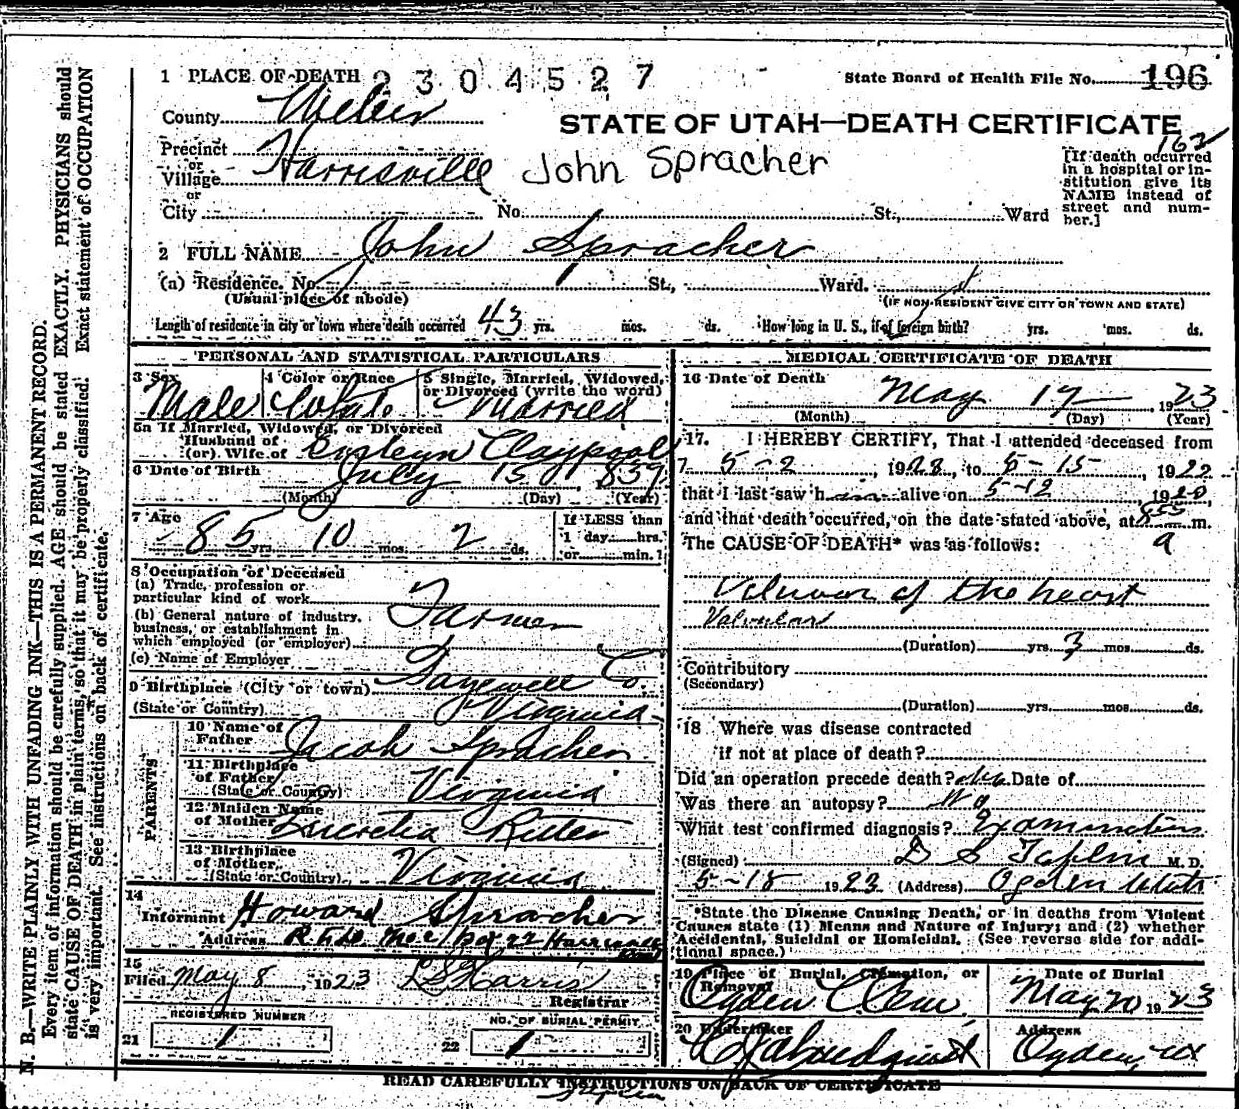 1 PLACE OF DEATH 2304527 State Board of Health File No. 196
County Weber
STATE OF UTAH—DEATH CERTIFICATE
162
Precinct
or
Village Harrisville John Spracher
or
City No. St., Ward
[If death occurred
in a hospital or in-
stitution give its
NAME instead of
street and num-
ber.]
2 FULL NAME John Spracher
(a) Residence. No. St., Ward.
(Usual place of abode) (IF NON-RESIDENT GIVE CITY OR TOWN AND STATE)
Length of residence in city or town where death occurred 43 yrs. mos. ds. How long in U. S., if of foreign birth? yrs. mos. ds.
PERSONAL AND STATISTICAL PARTICULARS
3 Sex 4 Color or Race 5 Single, Married, Widowed,
or Divorced (write the word)
Male White Married
5a If Married, Widowed, or Divorced
Husband of
(or) Wife of Claypool
6 Date of Birth
July 15 1837
(Month) (Day) (Year)
7 Age If LESS than
85 yrs. 10 mos. 2 ds. 1 day hrs.
or min.?
8 Occupation of Deceased
(a) Trade, profession or
particular kind of work
Farmer
(b) General nature of industry,
business, or establishment in
which employed (or employer)
(c) Name of Employer
9 Birthplace (City or town) Tazewell Co.
(State or Country) Virginia
PARENTS
10 Name of
Father Jacob Spracher
11 Birthplace
of Father
(State or Country) Virginia
12 Maiden Name
of Mother Lucretia Ritter
13 Birthplace
of Mother
(State or Country) Virginia
14
Informant Howard Spracher
Address R.F.D. No 2 Box 22 Harrisville
15
Filed May 8, 1923 L S Harris
Registrar
REGISTERED NUMBER NO. OF BURIAL PERMIT
21 1 22 1
MEDICAL CERTIFICATE OF DEATH
16 Date of Death
May 17 1923
(Month) (Day) (Year)
17. I HEREBY CERTIFY, That I attended deceased from
5-2, 1923, to 5-15, 1923
that I last saw him alive on 5-12, 1923
and that death occurred, on the date stated above, at 855 m.
a
The CAUSE OF DEATH* was as follows:
of the heart
Valvular
(Duration) yrs. 3 mos. ds.
Contributory
(Secondary)
(Duration) yrs. mos. ds.
18 Where was disease contracted
if not at place of death?
Did an operation precede death? Date of
Was there an autopsy? No
What test confirmed diagnosis? Examination
(Signed) D S Taplin M. D.
5-18 1923 (Address) Ogden Utah
*State the Disease Causing Death, or in deaths from Violent
Causes state (1) Means and Nature of Injury; and (2) whether
Accidental, Suicidal or Homicidal. (See reverse side for addi-
tional space.)
19 Place of Burial, Cremation, or
Removal Date of Burial
Ogden Cem May 20 1923
20 Undertaker Address
Ogden, Ut
READ CAREFULLY INSTRUCTIONS ON BACK OF CERTIFICATE
N. B.—WRITE PLAINLY WITH UNFADING INK—THIS IS A PERMANENT RECORD.
Every item of information should be carefully supplied. AGE should be stated EXACTLY. PHYSICIANS should
state CAUSE OF DEATH in plain terms, so that it may be properly classified. Exact statement of OCCUPATION
is very important. See instructions on back of certificate.